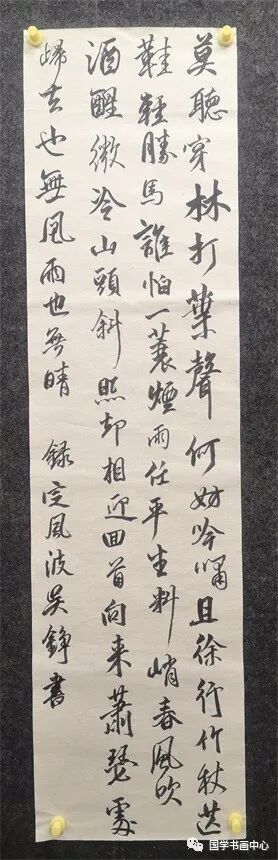 莫聽穿林打葉聲何妨吟嘯且徐行竹杖芒
鞋輕勝馬誰怕一蓑煙雨任平生料峭春風吹
酒醒微冷山頭斜照却相迎回首向来蕭瑟處
歸去也無風雨也無晴 録定風波吴錚書
国学书画中心